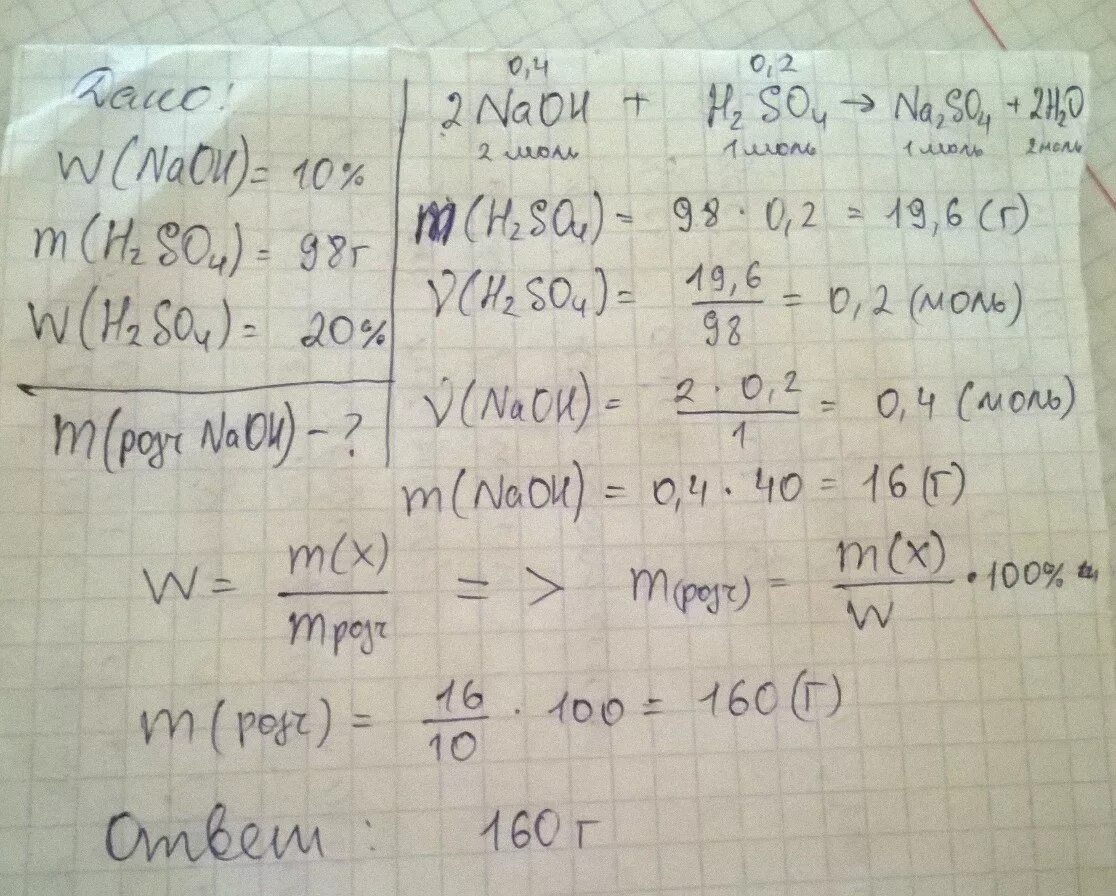 Дано:
W(NaOH)= 10%
m(H₂SO₄)= 98г
W(H₂SO₄)= 20%
m(розч NaOH) - ?
0,4 0,2
2NaOH + H₂SO₄ → Na₂SO₄ + 2H₂O
2 моль 1 моль 1 моль 2 моль
m(H₂SO₄) = 98 · 0,2 = 19,6 (г)
ν(H₂SO₄) = 19,6/98 = 0,2 (моль)
ν(NaOH) = 2 · 0,2/1 = 0,4 (моль)
m(NaOH) = 0,4 · 40 = 16 (г)
W = m(x)/m розч => m(розч) = m(x)/W · 100%
m(розч) = 16/10 · 100 = 160 (г)
Ответ: 160 г